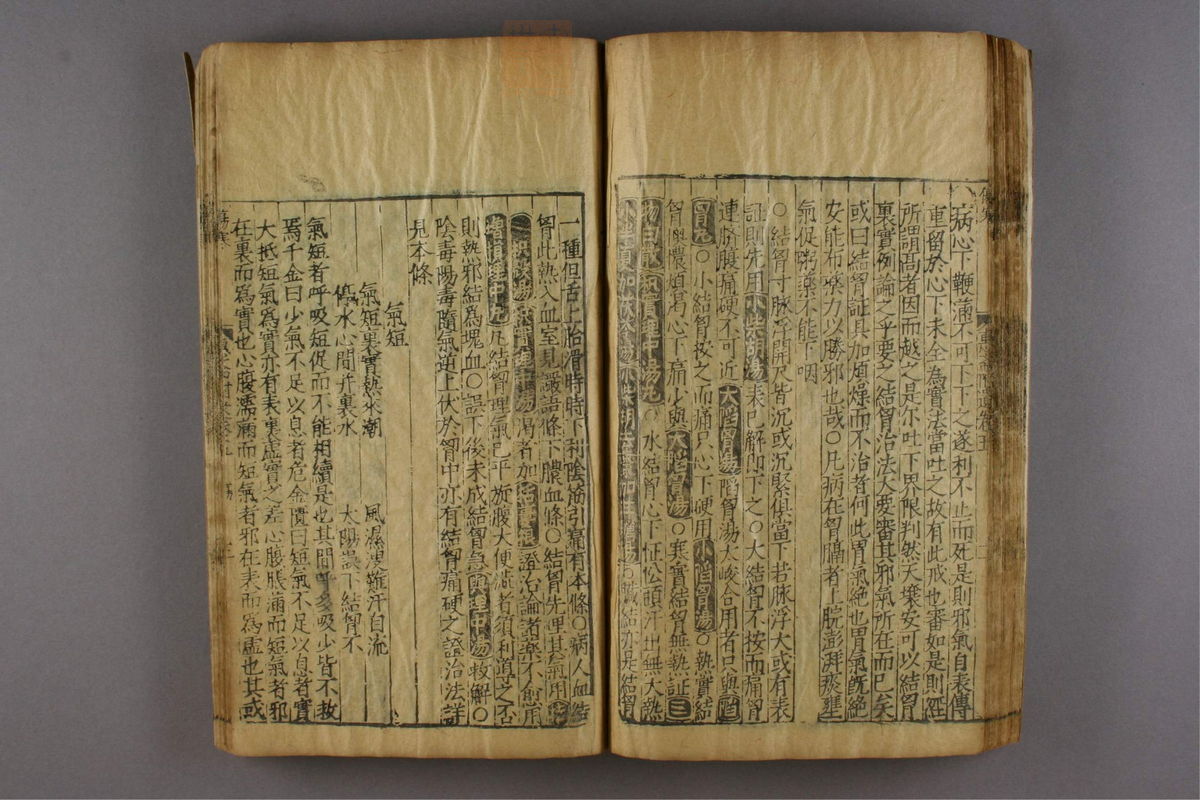 病心下鞕滿不可下下之遂利不止而死是則邪氣自表傳
重留於心下未全為實法當吐之故有此戒也審如是則經
所謂高者因而越之是尔吐下界限判然天壤安可以結胷
裏實例論之乎要之結胷治法大要審其邪氣所在而已矣
或曰結胷証具加煩燥而不治者何此胃氣絶也胃氣旣絶
安能布藥力以勝邪也哉○凡病在胷膈者上脘澎湃痰壅
氣促粥藥不能下咽
○結胷寸脉浮關尺皆沉或沉緊俱當下若脉浮大或有表
証則先用小柴胡湯表已解而下之○大結胷不按而痛胷
連臍腹痛硬不可近大陷胷湯陷胷湯太峻合用者只與陷
胷丸○小結胷按之而痛只心下硬用小陷胷湯○熱實結
胷懊憹煩渴心下痛少與大陷胷湯○寒實結胷無熱証三
物白散枳實理中湯丸○水結胷心下怔忪頭汗出無大熱
小半夏加茯苓湯小柴胡去棗加牡蠣湯○臟結亦是結胷
一種但舌上胎滑時時下利陰筋引痛有本條○病人血結
胷此熱入血室見讝語條下膿血條○結胷先理其氣用
枳梗湯枳實理中湯渴者加栝蔞根證治論諸藥不愈用
增損理中丸凡結胷理氣已平旋腹大便澁者須利道之否
則熱邪結為塊血○誤下後未成結胷急與理中湯救解○
陰毒陽毒隨氣逆上伏於胷中亦有結胷痛硬之證治法詳
見本條
氣短
氣短裏實熱來潮 風濕溲難汗自流
停水心間并裏水 太陽誤下結胷不
氣短者呼吸短促而不能相續是也其間呼多吸少皆不救
焉千金曰少氣不足以息者危金匱曰短氣不足以息者實
大抵短氣為實亦有表裏虛實之差心腹脹滿而短氣者邪
在裏而為實也心腹濡滿而短氣者邪在表而為虛也其或